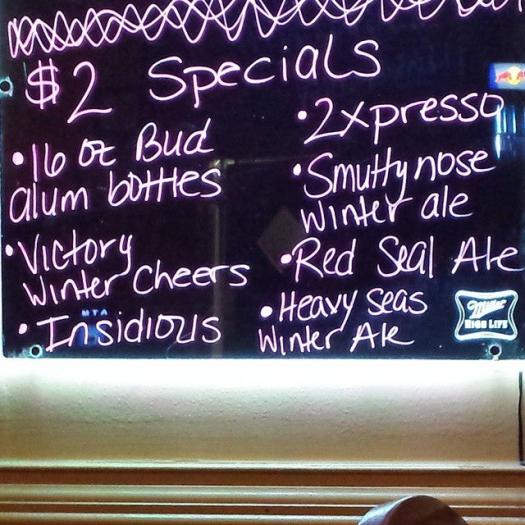 $2 Specials
• 16 oz Bud
alum bottles
• Victory
Winter Cheers
• Insidious
• 2xpresso
• Smuttynose
winter ale
• Red Seal Ale
• Heavy Seas
Winter Ale
MTA
Miller
HIGH LIFE